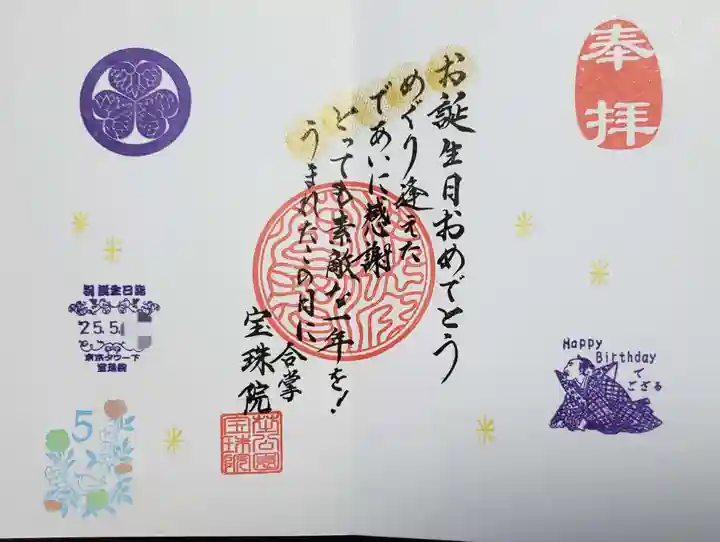 奉拝
お誕生日おめでとう
めぐり逢えた
であいに感謝
とっても素敵な一年を!
うまれたこの日に
合掌
宝珠院
Happy
Birthday
で
ござる
祝誕生日詣
25.5.
東京タワー下
宝珠院
5
芝公園
宝珠院